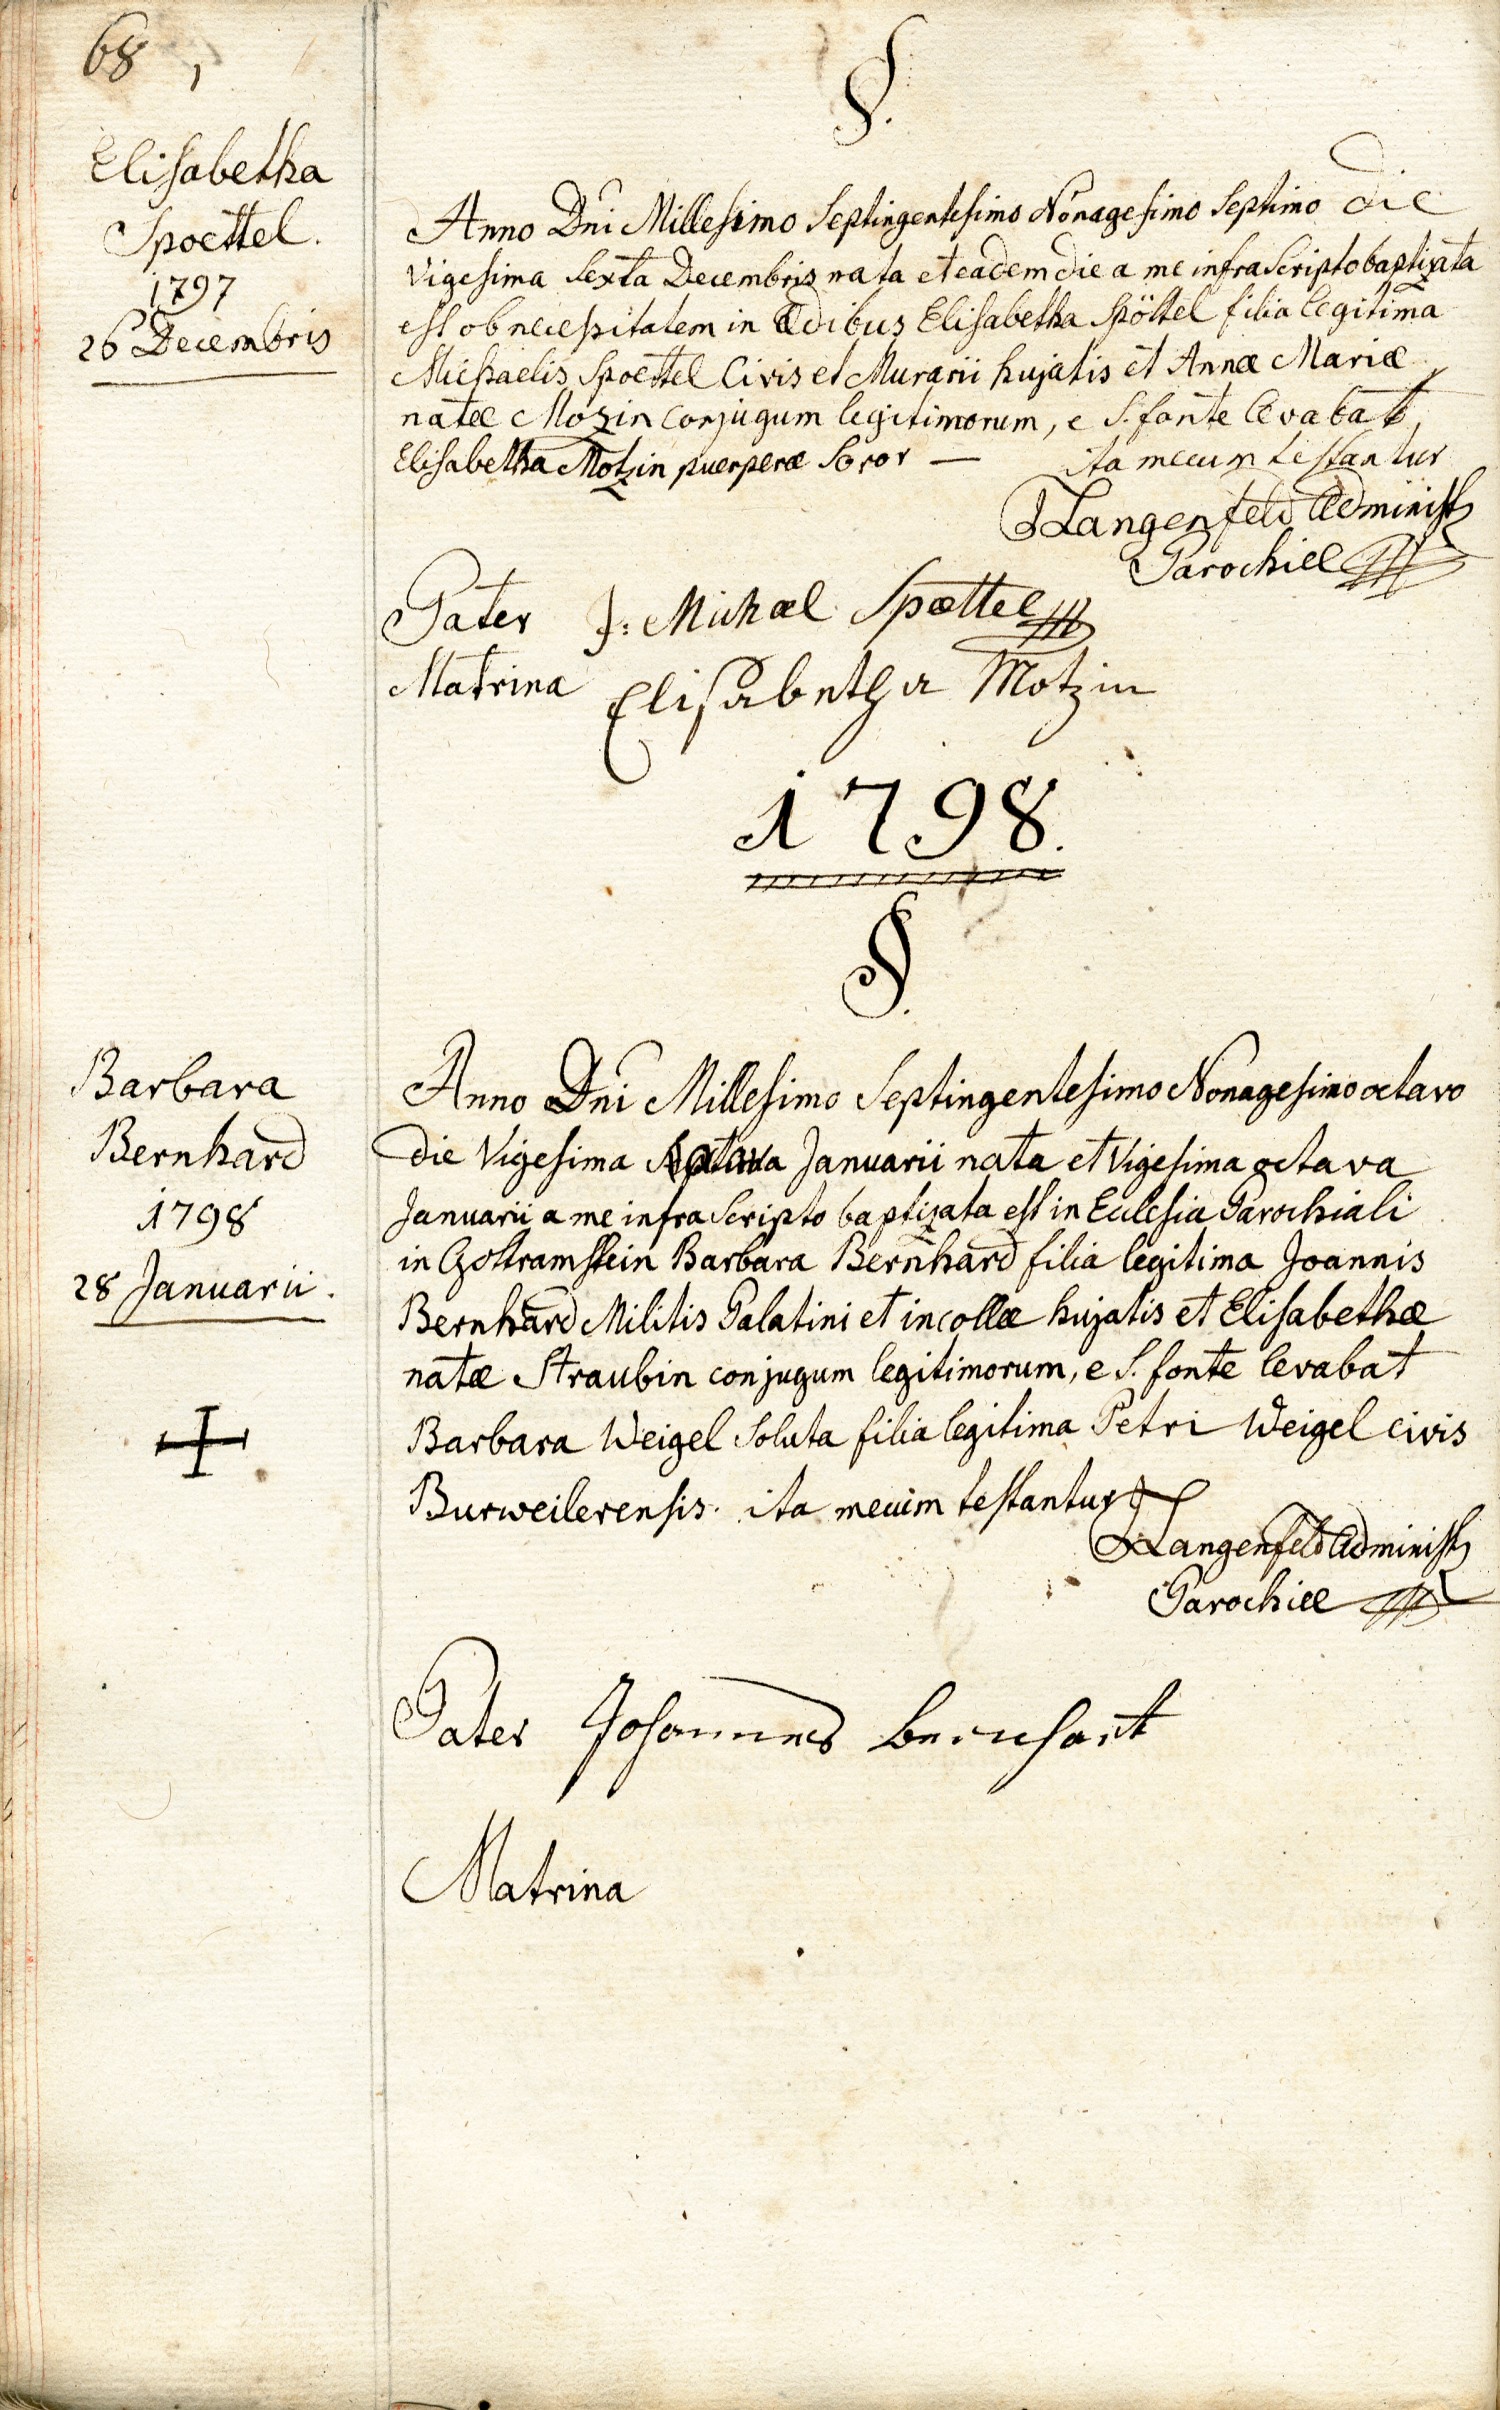 68
§.
Elisabetha
Spoettel.
1797
26 Decembris
Anno Dni Millesimo Septingentesimo Nonagesimo Septimo die
Vigesima Sexta Decembris nata et eadem die a me infra Scripto baptizata
est ob necessitatem in Ædibus Elisabetha Spöttel filia legitima
Michaelis Spoettel Civis et Murarii hujatis et Annæ Mariæ
natæ Mozin conjugum legitimorum, e S. fonte levabat
Elisabetha Motzin puerperæ Soror — ita mecum testantur
Langenfeld Administr
Parochiæ
Pater J: Michæl Spœttel
Matrina Elisabetha Motzin
1798.
§.
Barbara
Bernhard
1798
28 Januarii.
Anno Dni Millesimo Septingentesimo Nonagesimo octavo
die Vigesima Januarii nata et Vigesima octava
Januarii a me infra Scripto baptizata est in Ecclesia Parochiali
in Godramstein Barbara Bernhard filia legitima Joannis
Bernhard Militis Palatini et incollæ hujatis et Elisabethæ
natæ Straubin conjugum legitimorum, e S. fonte levabat
Barbara Weigel Soluta filia legitima Petri Weigel civis
Burweilerensis. ita mecum testantur
Langenfeld Administr
Parochiæ
Pater Johannes bernhart
Matrina